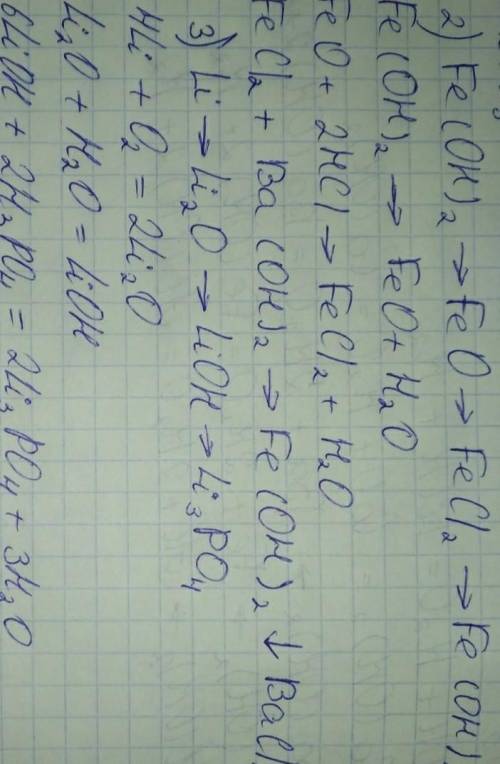 2) Fe(OH)₂ → FeO → FeCl₂ → Fe(OH)
Fe(OH)₂ → FeO + H₂O
FeO + 2HCl → FeCl₂ + H₂O
FeCl₂ + Ba(OH)₂ → Fe(OH)₂ ↓ BaCl
3) Li → Li₂O → LiOH → Li₃PO₄
4Li + O₂ = 2Li₂O
Li₂O + H₂O = LiOH
6LiOH + 2H₃PO₄ = 2Li₃PO₄ + 3H₂O